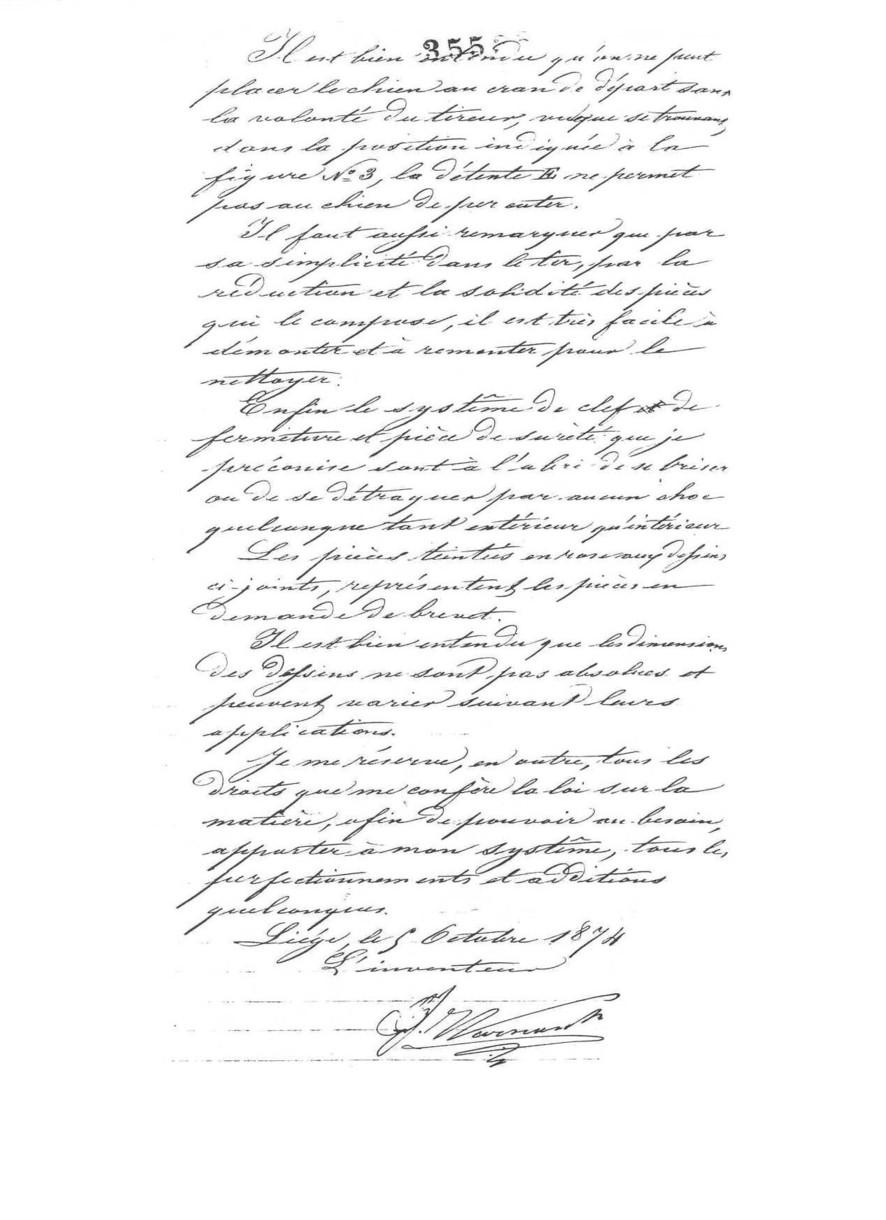 355
Il est bien entendu qu'on ne peut
placer le chien au cran de départ sans
la volonté du tireur, vu que se trouvant
dans la position indiquée à la
figure No 3, la détente E ne permet
pas au chien de percuter.
Il faut aussi remarquer que par
sa simplicité dans le tir, par la
réduction et la solidité des pièces
qui le compose, il est très facile à
démonter et à remonter pour le
nettoyer.
Enfin le système de clef de
fermeture et pièce de sureté que je
préconise sont à l'abri de se briser
ou de se détraquer par aucun choc
quelconque tant extérieur qu'intérieur
Les pièces teintées en rose aux dessins
ci-joints, représentent les pièces en
demande de brevet.
Il est bien entendu que les dimensions
des dessins ne sont pas absolues et
peuvent varier suivant leurs
applications.
Je me réserve, en outre, tous les
droits que me confère la loi sur la
matière, afin de pouvoir au besoin,
apporter à mon système, tous les
perfectionnements et additions
quelconques.
Liége, le 5 Octobre 1874
L'inventeur
J. Warnant